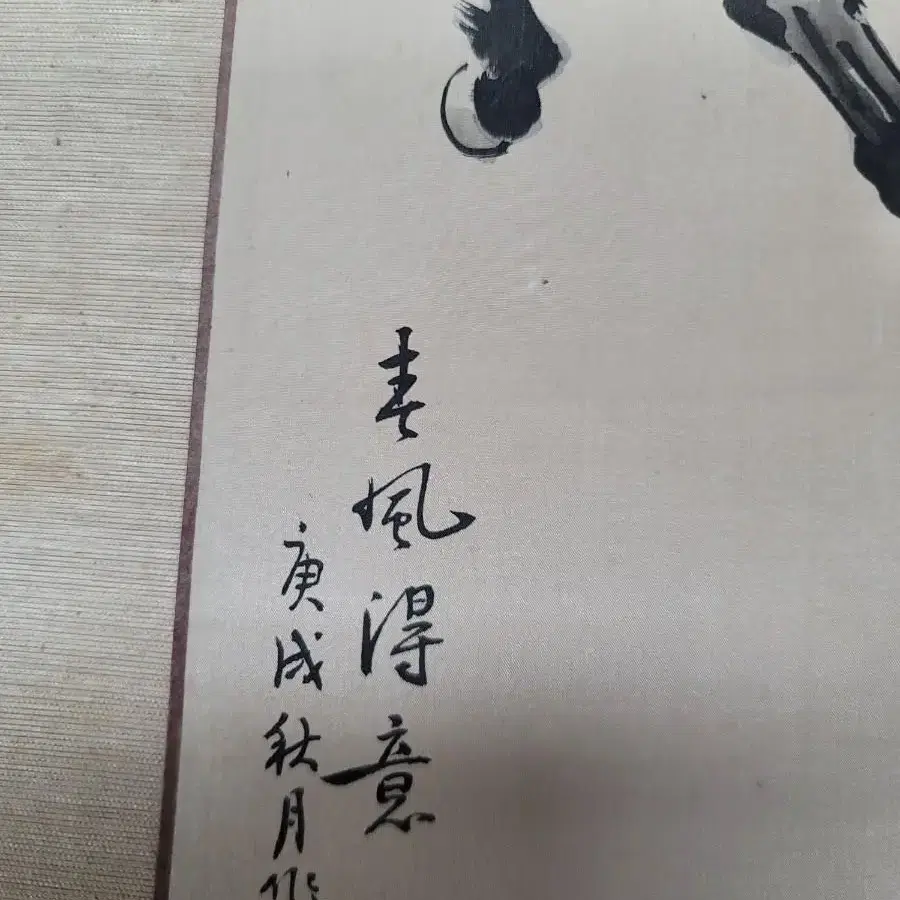 春風得意
庚戌秋月作